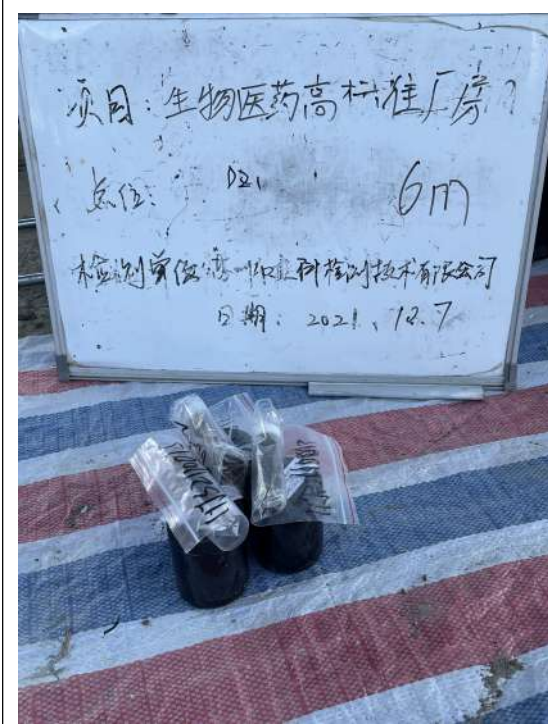 项目:生物医药高标准厂房
点位: DZ1 6m
检测单位 检测技术有限公司
日期: 2021.12.7